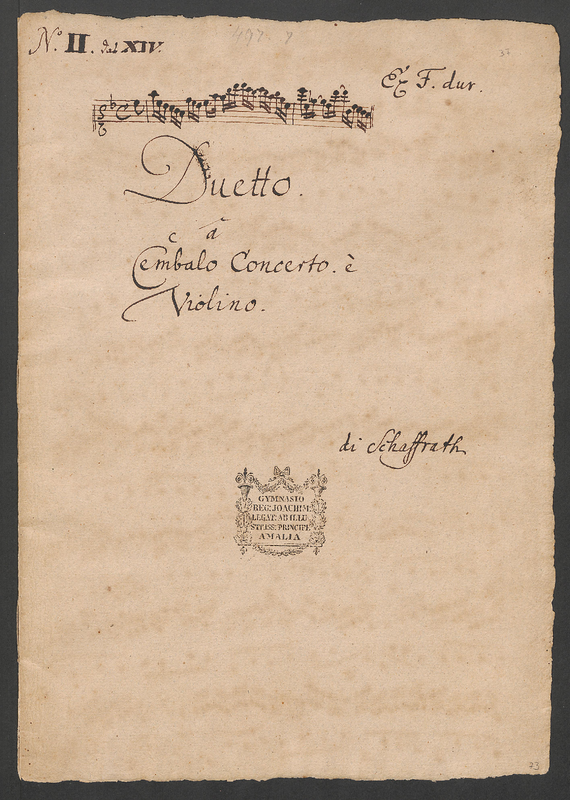 No. II. XIV.
Ex F. dur.
Duetto.
â
Cembalo Concerto. è
Violino.
di Schaffrath
GYMNASIO
REG: JOACHIM:
LEGAT: AB ILLU
STRISS: PRINCIPE
AMALIA
73